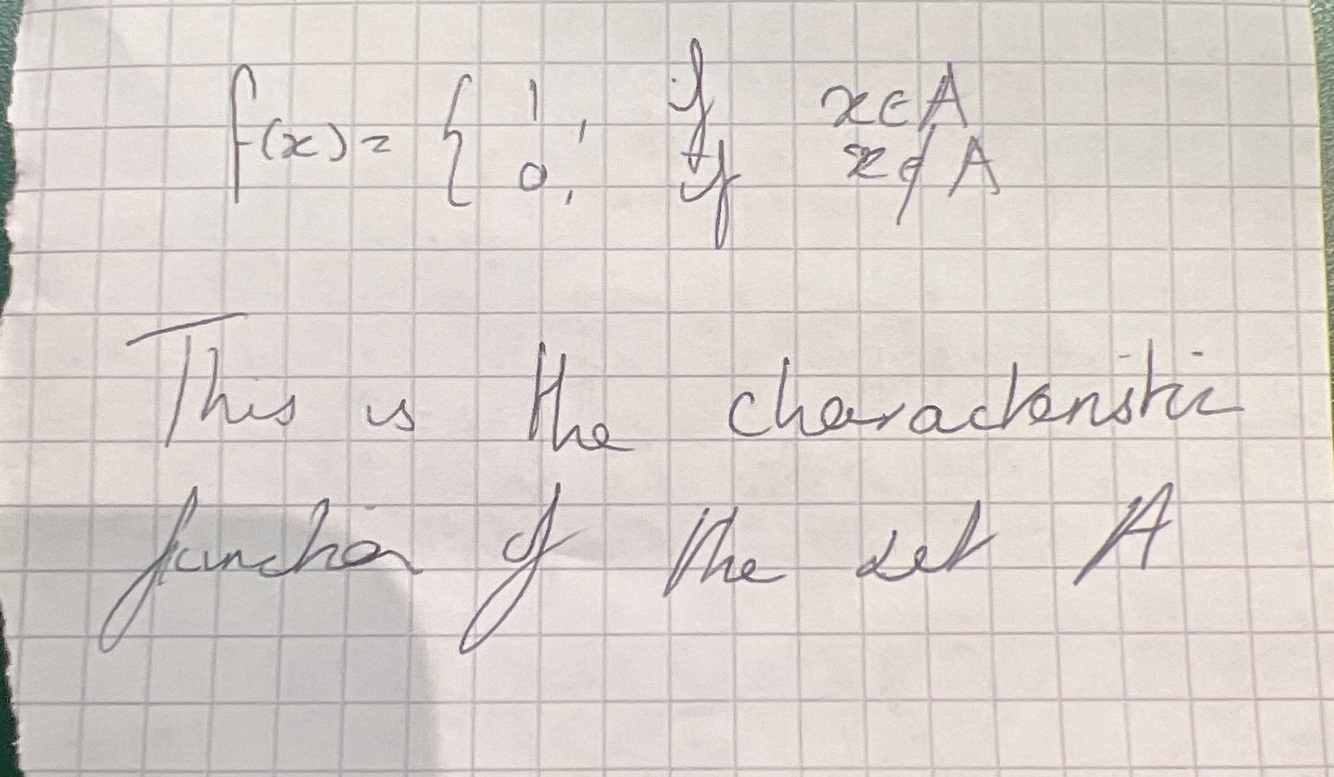 f(x) = { 1, if x ∈ A
0, if x ∉ A
This is the characteristic
function of the set A